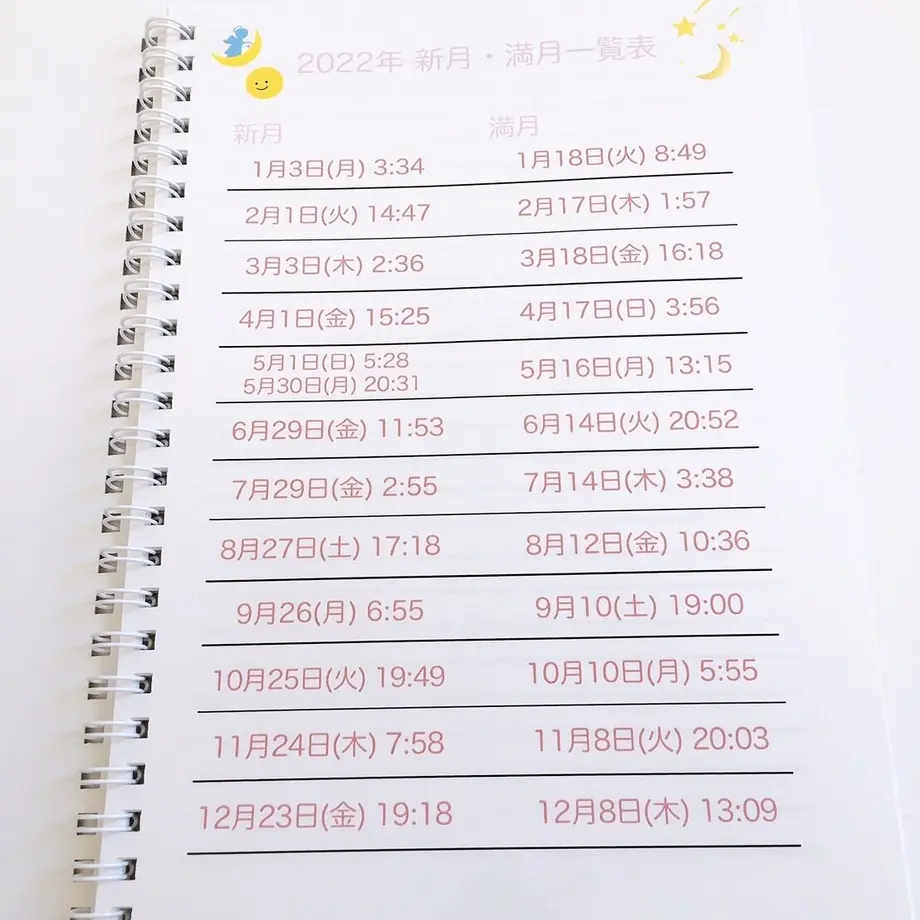 2022年 新月・満月一覧表
新月 満月
1月3日(月) 3:34 1月18日(火) 8:49
2月1日(火) 14:47 2月17日(木) 1:57
3月3日(木) 2:36 3月18日(金) 16:18
4月1日(金) 15:25 4月17日(日) 3:56
5月1日(日) 5:28
5月30日(月) 20:31 5月16日(月) 13:15
6月29日(金) 11:53 6月14日(火) 20:52
7月29日(金) 2:55 7月14日(木) 3:38
8月27日(土) 17:18 8月12日(金) 10:36
9月26(月) 6:55 9月10(土) 19:00
10月25日(火) 19:49 10月10日(月) 5:55
11月24日(木) 7:58 11月8日(火) 20:03
12月23日(金) 19:18 12月8日(木) 13:09